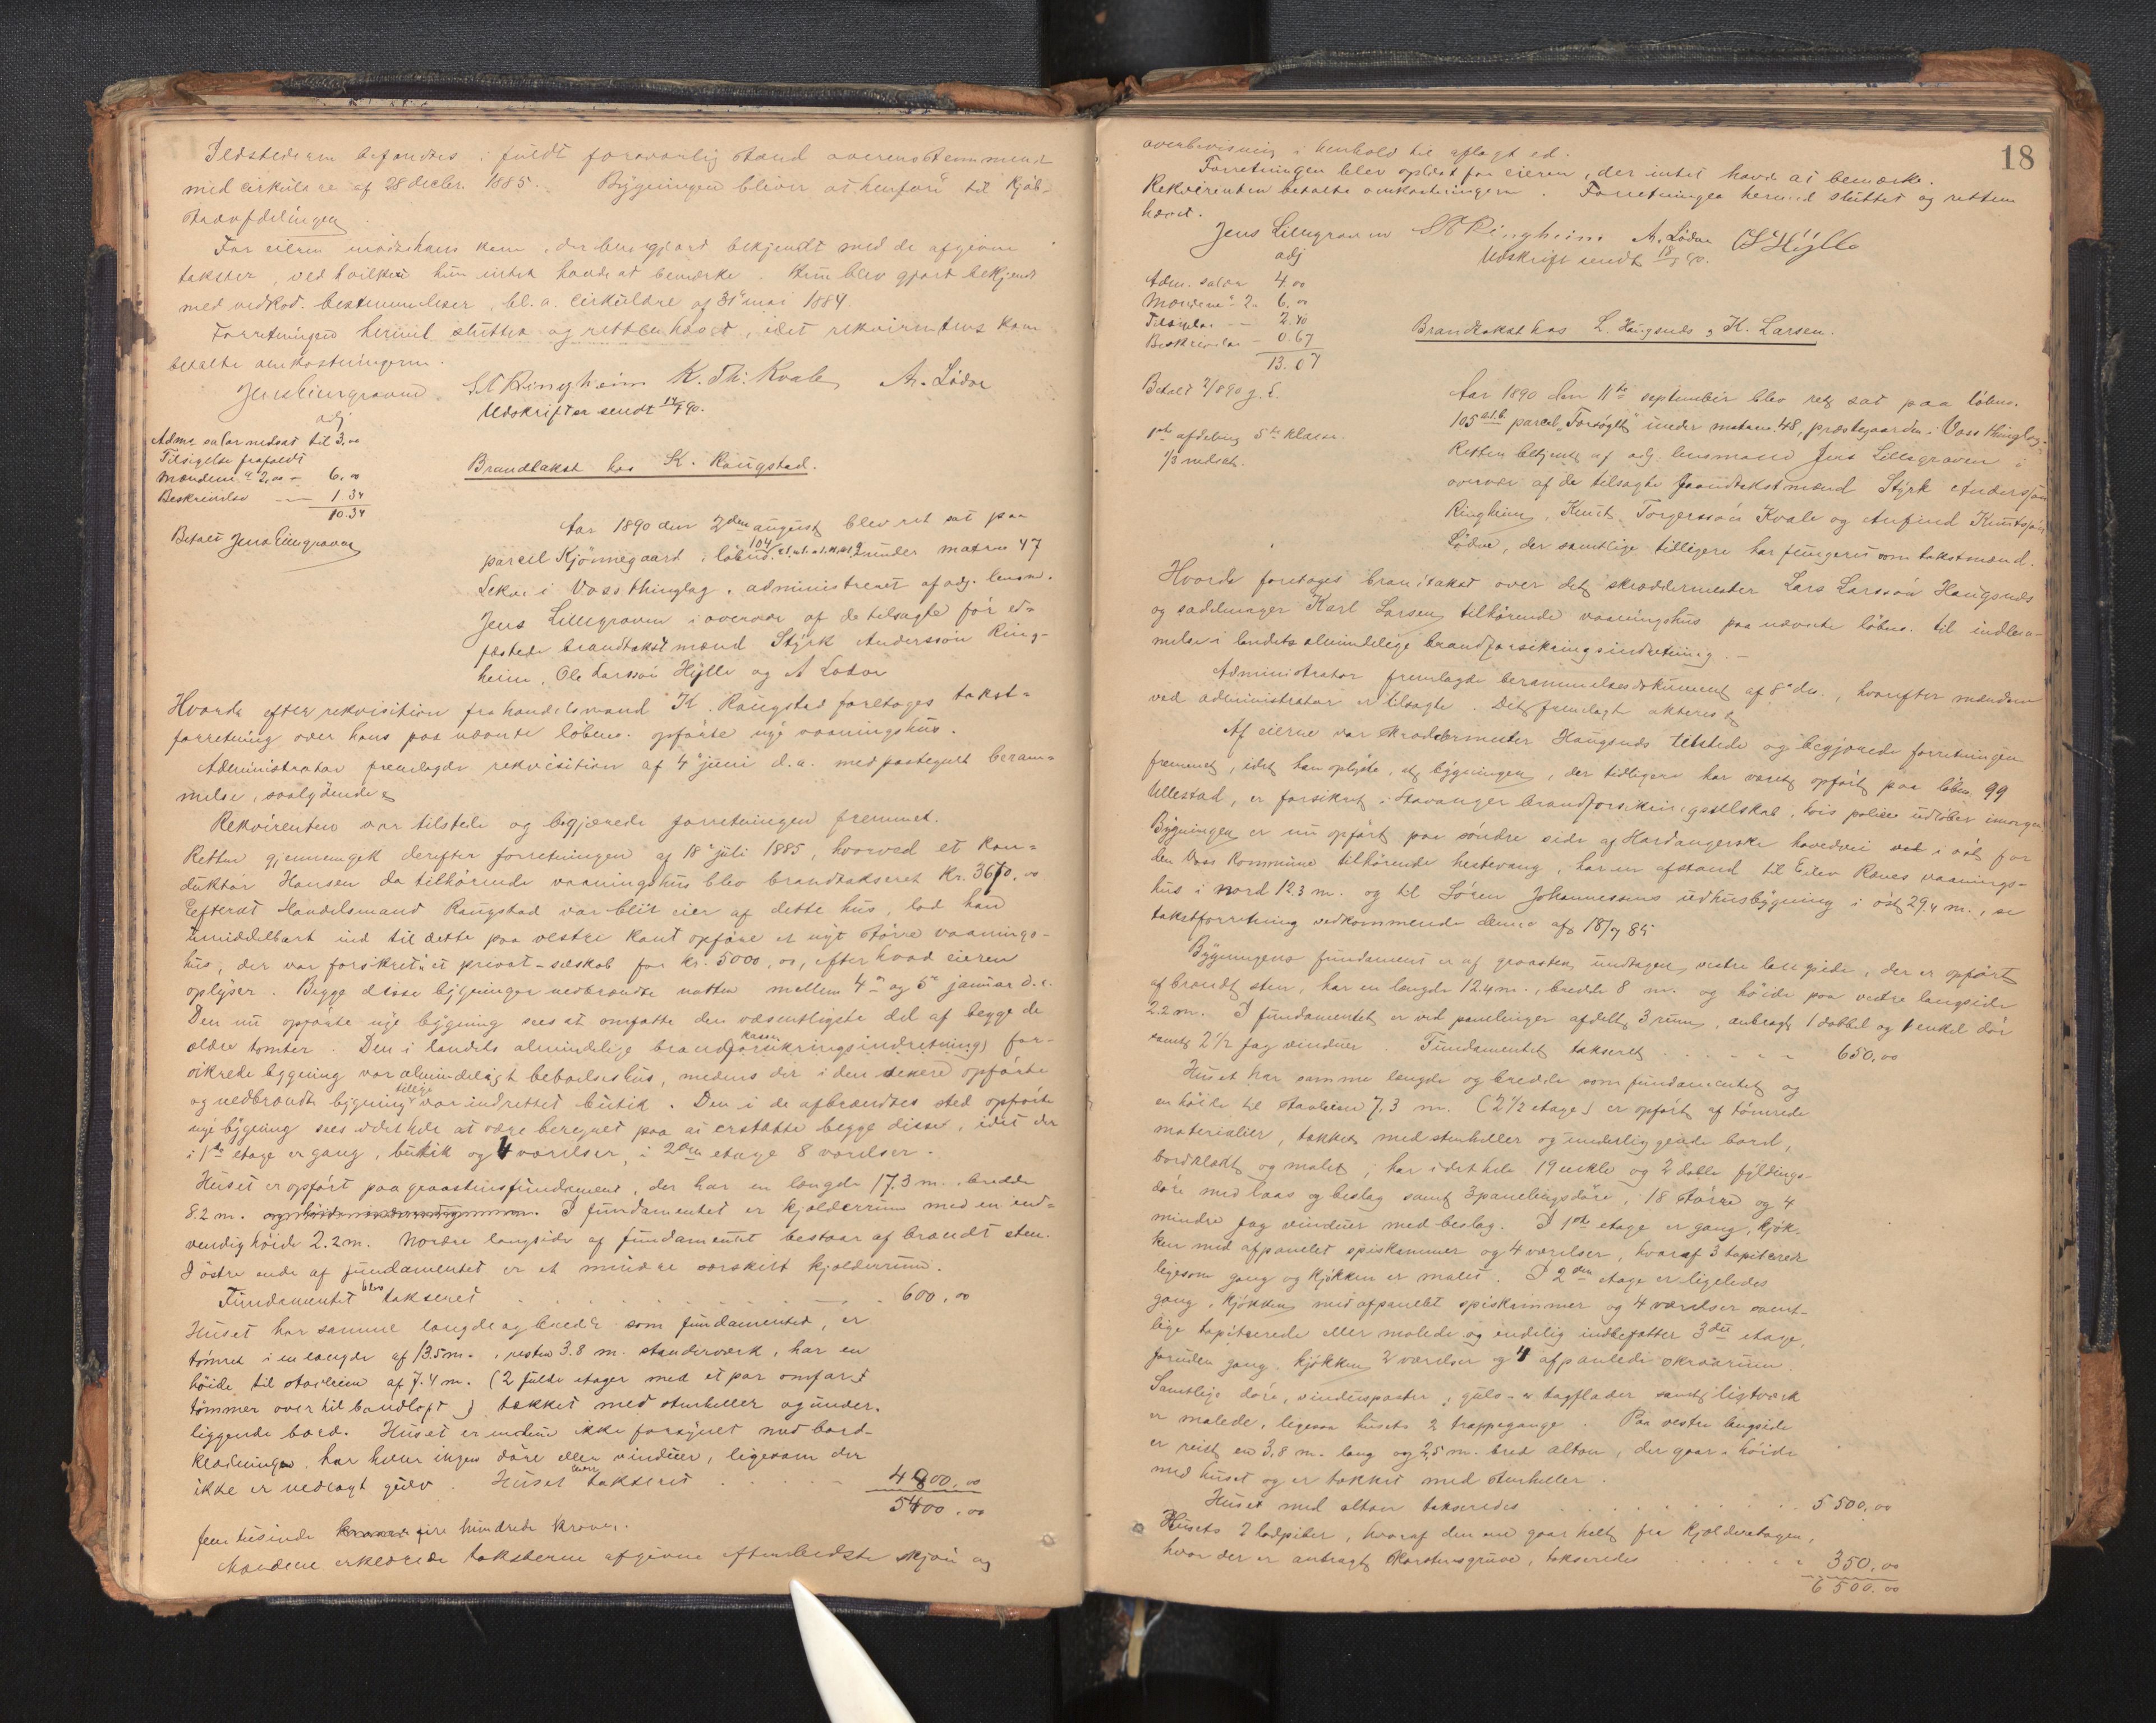 Ildstederne befandtes i fuldt forsvarlig stand overensstemmende
med cirkulære af 28 decbr. 1885. Bygningen bliver at henføre til Kjøb-
stadafdelingen.
For eieren kom, der blev gjort bekjendt med de afgivne
takster, ved hvilke hun intet havde at bemærke. Hun blev gjort bekjendt
med vedkod. bestemmelser, bl.a. Cirkulære af 31te mai 1884.
Forretningen hermed sluttet og retten hævet, idet rekvirentens kone
betalte omkostningerne.
Jens Lillegraven S A Ringheim K. Th. Kvale A. Lødve
adj
Udskrifter sendt 14/8 90.
Adms. salær nedsat til 3.00
Tilsigelse frafaldt
Mændene à 2,00 - 6.00
Beskrivelse - 1 34
10.34
Betalt Jens Lillegraven
Brandtakst hos K. Rongstad.
Aar 1890 den 2den august blev ret sat paa
parcel Kjønnegaard, løbno. 104 under matrno 47
Lekve i Voss thinglag, administreret af adj. lensm.
Jens Lillegraven i overvær af de tilsagte før ed-
fæstede brandtakstmænd Styrk Anderssøn Ring-
heim, Ole Larssøn Hylle og A Lødve
Hvorda efter rekvisition fra handelsmand K. Rongstad foretoges takst-
forretning over hans paa nævnte løbeno. opførte nye vaaningshus.
Administrator fremlagde rekvisition af 4de juni d.a. med paategnet beram-
melse, saalydende
Rekvirenten var tilstede og begjærede forretningen fremmet.
Retten gjennemgik derefter forretningen af 18de juli 1885, hvorved et Kon-
duktør Hansen da tilhørende vaaningshus blev brandtakseret Kr. 3670.00
Efterat Handelsmand Rongstad var blit eier af dette hus, lod han
umiddelbart ind til dette paa vestre kant opføre et nyt større vaanings-
hus, der var forsikret i et privat-selskab for kr. 5000,00, efter hvad eieren
oplyser. Begge disse bygninger nedbrændte natten mellem 4de og 5te januar d.a.
Den nu opførte nye bygning sees at omfatte den væsentligste del af begge de
ældre tomter. Den i landets almindelige brandforsikringsindretning for-
sikrede bygning var almindeligt beboelseshus, medens der i den senere opførte
og nedbrændte bygning tillige var indrettet butik. Den i de afbrændtes sted opførte
nye bygning sees i det hele at være beregnet paa at erstatte begge disse, idet der
i 1ste etage er gang, butik og 4 værelser, i 2den etage 8 værelser.
Huset er opført paa graastensfundament, der har en længde 17.3 m., bredde
8.2 m. I fundamentet er kjelderrum med en ind-
vendig høide 2.2 m. Nordre langside af fundamentet bestaar af brændt sten.
I østre ende af fundamentet er et mindre særskilt kjelderrum.
Fundamentet blev takseret . . . . . 600,00
Huset har samme længde og bredde som fundamentet, er
tømret i en længde af 13.5 m., resten 3.8 m. standerværk, har en
høide til stavleien af 7.4 m. (2 fulde etager med et par omfar
tømmer over til bandloft) takket med stenheller og under-
liggende bord. Huset er endnu ikke forsynet med bord-
klædning, har hver ingen døre eller vinduer, ligesom der
ikke er nedlagt gulv. Huset blev takseret . . 4800.00
5400.00
fem tusinde fire hundrede kroner.
Mændene erklærede taksterne afgivne efter bedste skjøn og
18
overbevisning i henhold til aflagt ed.
Forretningen blev oplæst for eieren, der intet havde at bemærke.
Rekvirenten betalte omkostningerne. Forretningen hermed sluttet og retten
hævet.
Jens Lillegraven S A Ringheim A. Lødve O L Hylle
adj
Udskrift sendt 18/9 90.
Adm. salær 4.00
Mændene à 2. 6.00
Tilsigelse - 2.40
Beskrivelse - 0.67
13.07
Betalt 2/8 90 J. L.
Brandtakst hos L. Haugsnds & K. Larsen.
1ste afdeling 5te klasse.
1/3 nedsat.
Aar 1890 den 11te september blev ret sat paa løbno.
105 parcel "Forsøglt" under matrno. 48, præstegaarden i Voss thinglag.
Retten betjent af adj. lensmand Jens Lillegraven i
overvær af de tilsagte brandtakstmænd Styrk Anderssøn
Ringheim, Knut Torgerssøn Kvale og Anfind Knutssøn
Lødve, der samtlige tilligere har fungeret som takstmænd.
Hvorda foretoges brandtakst over det skræddermester Lars Larssøn Haugsnds
og sadelmager Karl Larsen tilhørende vaaningshus paa nævnte løbno. til indlem-
melse i landets almindelige brandforsikringsindretning.
Administrator fremlagde berammelsesdokument af 8de ds., hvorefter mændene
ved administrator er tilsagte. Det fremlagte akteres
Af eierne var skræddermester Haugsnds tilstede og begjærede forretningen
fremmet, idet han oplyste, at bygningen, der tidligere har været opført paa løbno. 99
Ullestad, er forsikret i Stavanger brandforsikringsselskab, hvis police udløber imorgen
Bygningen er nu opført paa søndre side af Hardangerske hovedvei i øst for
den Voss Kommune tilhørende hestevang, har en afstand til Eilev Rones vaanings-
hus i nord 12.3 m. og til Søren Johannessens udhusbygning i øst 29.4 m., se
takstforretning vedkommende denne af 18/7 85
Bygningens fundament er af graasten undtagen vestre langside, der er opført
af brændt sten, har en længde 12.4 m., bredde 8 m. og høide paa vestre langside
2.2 m. I fundamentet er ved panelinger afdelt 3 rum, anbragt 1 dobbel og 1 enkel dør
samt 2 1/2 fag vinduer. Fundamentet takseret . . . . . 650.00
Huset har samme længde og bredde som fundamentet og
en høide til stavleien 7.3 m. (2 1/2 etage) er opført af tømrede
materialier, takket med stenheller og underliggende bord,
bordklædt og malet; har i det hele 19 enkle og 2 doble fyldings-
døre med laas og beslag samt 3 panelingsdøre, 18 større og 4
mindre fag vinduer med beslag. I 1ste etage er gang, kjøk-
ken med afpanelet spiskammer og 4 værelser, hvoraf 3 tapiterede
ligesom gang og kjøkken er malet. I 2den etage er ligeledes
gang, kjøkken med afpanelt spiskammer og 4 værelser samt-
lige tapiterede eller malede og endelig indbefatter 3die etage,
foruden gang, kjøkken 2 værelser og 4 afpanlede skraarum.
Samtlige døre, vinduesposter, gulv- og tagflader samt listværk
er malede, ligesaa husets 2 trappegange. Paa vestre langside
er reist en 3,8 m. lang og 2,5 m. bred altan, der gaar i høide
med huset og er takket med stenheller.
Huset med altan takseredes . . . . . . 5 500,00
Husets 2 ladpiber, hvoraf den ene gaar helt fra kjelderetagen,
hvor der er anbragt skorstensgruve, takseredes . . . . 350.00
6 500.00